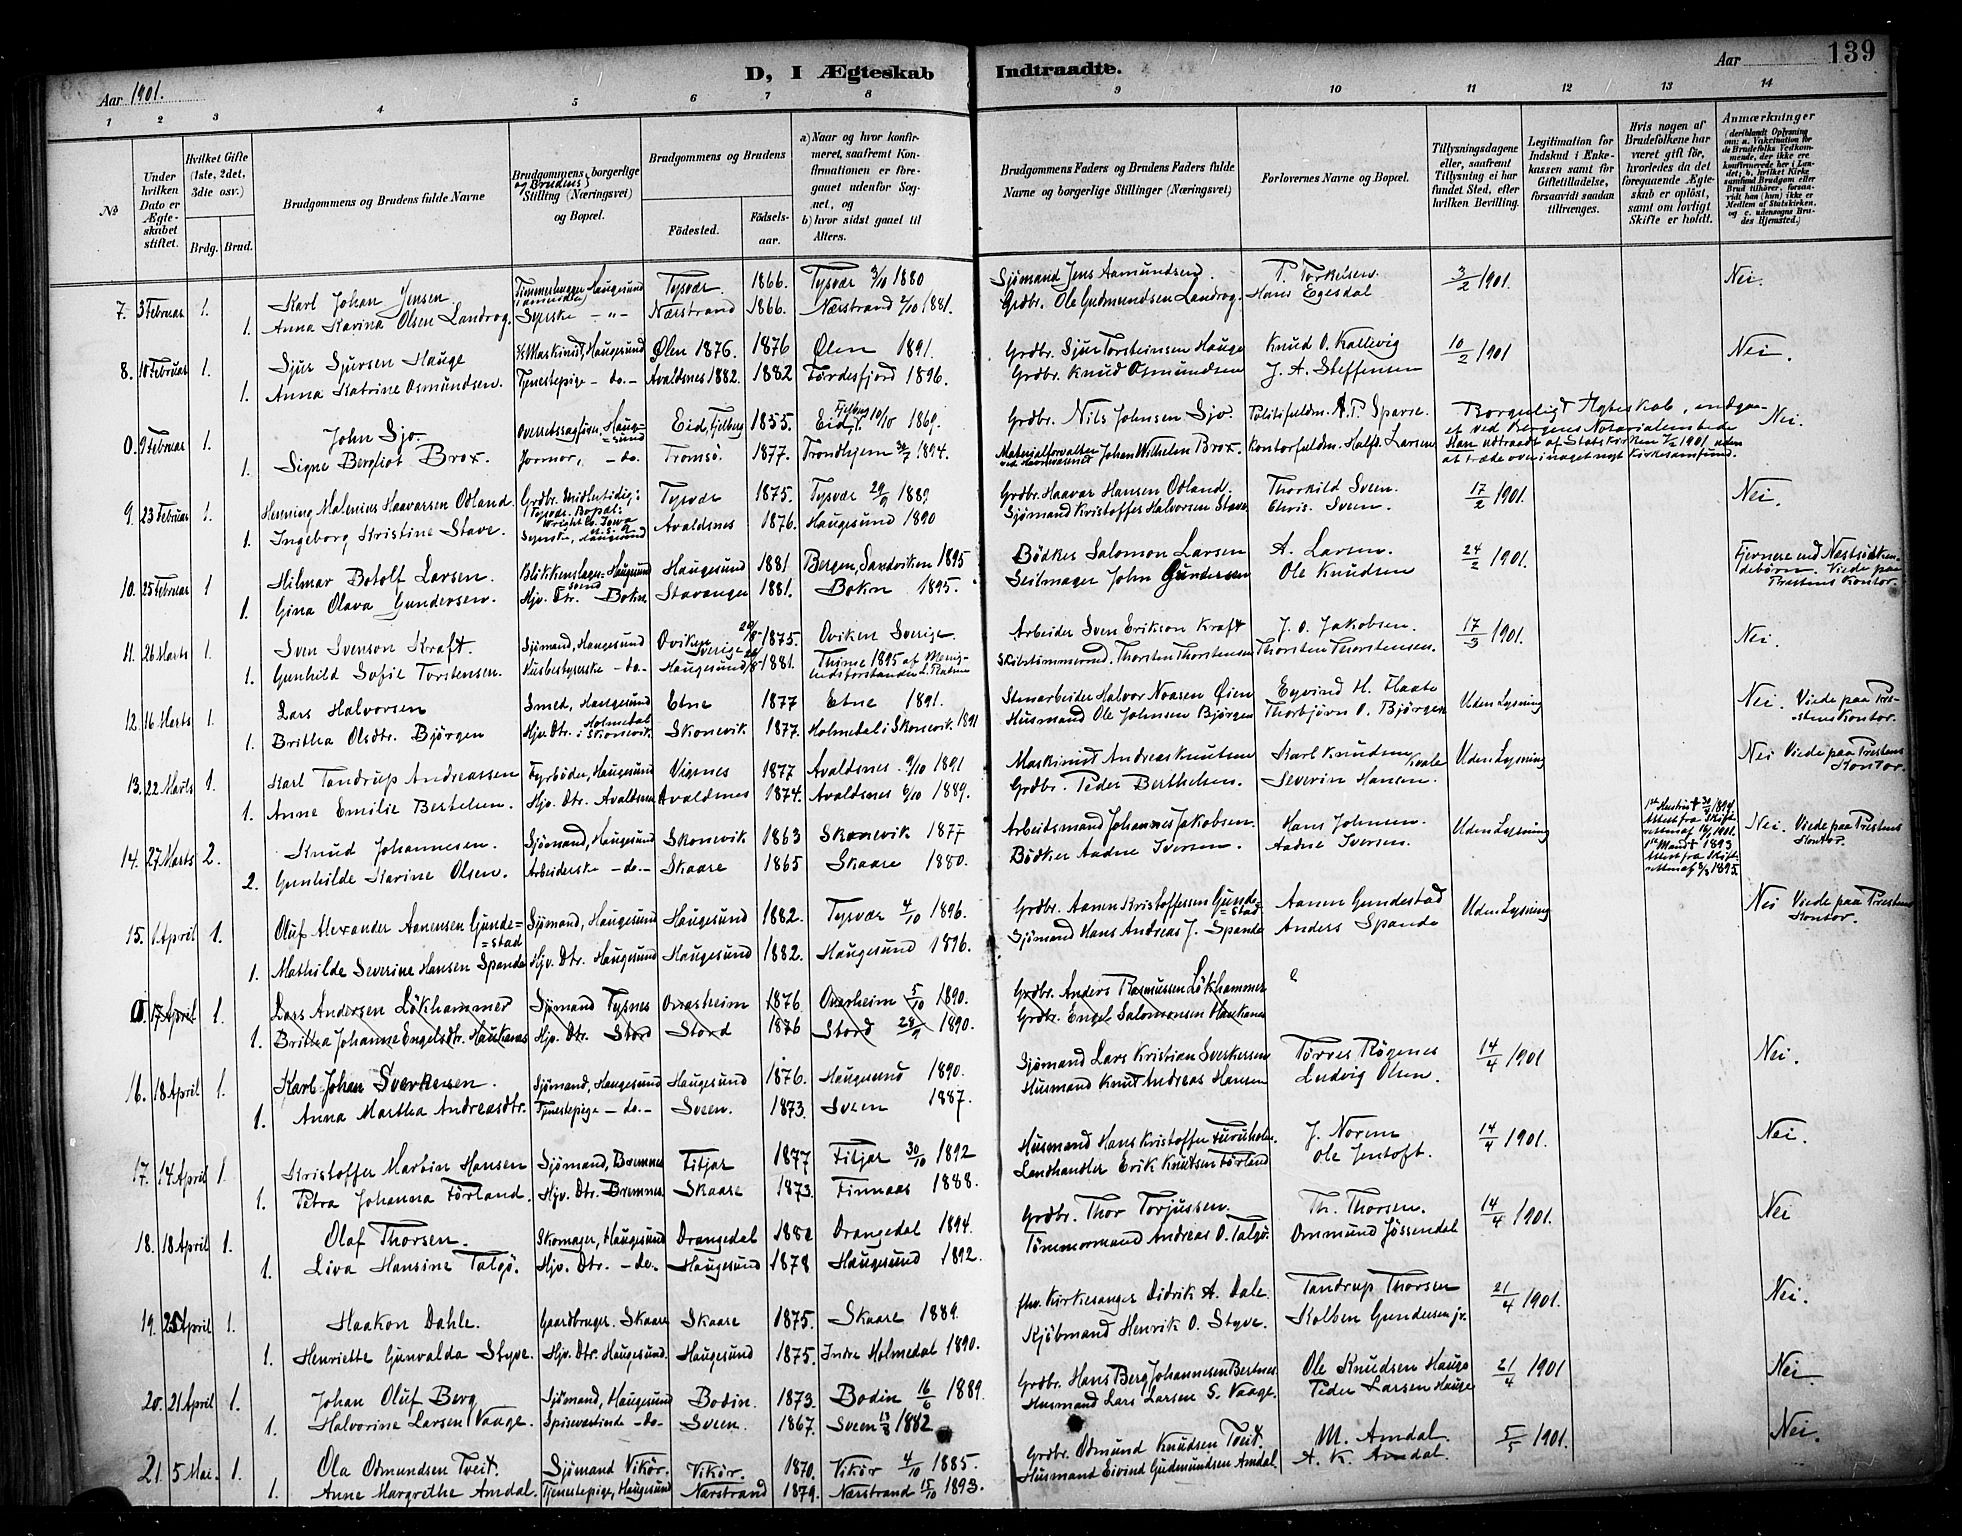 D, I Ægteskab Indtraadte.
Aar 1901.
Aar 139
1 2 3 4 5 6 7 8 9 10 11 12 13 14
№
Under hvilken Dato er Ægteskabet stiftet.
Hvilket Gifte (1ste, 2det, 3die osv.)
Brdg. Brud.
Brudgommens og Brudens fulde Navne
Brudgommens og Brudens borgerlige Stilling (Næringsvei) og Bopæl.
Brudgommens og Brudens
Födested.
Födsels-aar.
a) Naar og hvor konfirmeret, saafremt Konfirmationen er foregaaet udenfor Sognet, og
b) hvor sidst gaaet til Alters.
Brudgommens Faders og Brudens Faders fulde Navne og borgerlige Stillinger (Næringsvei)
Forlovernes Navne og Bopæl.
Tillysningsdagene eller, saafremt Tillysning ei har fundet Sted, efter hvilken Bevilling.
Legitimation for Indskud i Enkekassen samt for Giftetilladelse, forsaavidt saadan tiltrænges.
Hvis nogen af Brudefolkene har været gift för, hvorledes da det foregaaende Ægteskab er oplöst, samt om lovligt Skifte er holdt.
Anmærkninger (deriblandt Oplysning om: a. Vakcination for de Brudefolks Vedkommende, der ikke ere konfirmerede her i Landet; b. hvilket Kirkesamfund Brudgom eller Brud tilhörer, forsaavidt han (hun) ikke er Medlem af Statskirken, og c. udensogns Brudes Hjemsted.)
7. 3 Februar 1. Karl Johan Jensen. Tømmerhugger Haugesund Tysvær. 1866. Tysvær 3/10 1880 Sjömand Jens Aamundsen. T. Torkelsen. 3/2 1901. Nei.
1. Anna Karina Olsen Landrog. Syerske -"- Nærstrand 1866. Nærstrand 2/10 1881. Grdbr. Ole Gudmundsen Landrog. Hans Egesdal
8. 10 Februar 1. Sjur Sjursen Hauge Maskinist, Haugesund Ølen 1876. 1876 Ølen 1891. Grdbr. Sjur Torsteinsen Hauge Knud O. Kallevig 10/2 1901 Nei.
1. Anna Katrine Osmundsen. Tjenestepige - do. - Avaldsnes 1882. 1882 Førdesfjord 1896. Grdbr. Knud Osmundsen J. A. Steffensen
0. 9 Februar 1. John Sjo. Overretssagfører, Haugesund Eid, Fjelberg 1855. Eid, Fjelberg 10/10 1869. Grdbr. Nils Johnsen Sjo. Politifuldm. A. P. Sparre. Borgerligt Ægteskab, indgaaet ved Bergens Notarialembede Nei.
1. Signe Bergliot Brox. Jormor, - do. Tromsö. 1877. Trondhjem 1894. Materialforvalter Johan Wilhelm Brox. Kontorfuldm. Halfd. Larsen Han udtraadt af Statskirken 7/2 1901 uden at træde over i noget nyt Kirkesamfund.
9. 23 Februar 1. Henning Malenius Haavarsen Odland. Grdbr. Midlertidig: Tysvær. Bopæl: Wright Co. Iowa U. S. A. Tysvær 1875. Tysvær 29/9 1889 Grdbr. Haavar Hansen Odland. Thorkild Sveen. 17/2 1901. Nei.
1. Ingeborg Kristine Stave. Syerske, Haugesund Avaldsnes 1876. Haugesund 1890 Sjömand Kristoffer Halvorsen Stave. Chris. Sveen.
10. 25 Februar 1 Hilmar Botolf Larsen. Blikkenslager Haugesund Haugesund 1881 Bergen, Sandviken 1895 Bödker Salomon Larsen A. Larsen. 24/2 1901. Fjernere end Næstsødskendebörn. Viede paa Prestens Kontor.
1. Gina Olava Gundersen. Hjv. Dtr. Bokn Stavanger 1881. Bokn 1895. Seilmager John Gundersen Ole Knudsen
11. 26 Marts 1. Sven Svenson Kraft. Sjömand, Haugesund Oviken Sverige 1875. Oviken Sverige. Arbeider Sven Erikson Kraft J. O. Jakobsen. 17/3 1901. Nei
1. Gunhild Sofie Torstensen. Husbestyrerske - do - Haugesund 1881. Thime 1895 af Menighedsforstander Skibstömmermd. Thorsten Thorstensen Thorsten Thorstensen.
12. 16 Marts 1. Lars Halvorsen Smed, Haugesund Etne 1877 Etne 1891. Stenarbeider Halvor Noasen Øien Eyvind H. Flaate Uden Lysning Nei. Viede paa Prestens Kontor.
1. Britha Olsdtr. Bjørgen Hjv. Dtr. Holmedal i Skonevik. Skonevik 1877. Holmedal i Skonevik 1891 Husmand Ole Johnsen Bjørgen Thorbjørn O. Bjørgen
13. 22 Marts 1. Karl Tandrup Andreassen Fyrböder, Haugesund Vigsnes 1877 Avaldsnes 9/10 1891 Maskinist Andreas Knutsen Karl Knudsen Uden Lysning Nei Viede paa Prestens Kontor.
1. Anne Emilie Bertelsen. Hjv. Dtr. Avaldsnes Avaldsnes 1874. Avaldsnes 6/10 1889. Grdbr. Peder Berthelsen. Severin Hansen.
14. 27 Marts 2. Knud Johannesen. Sjömand, Haugesund Skonevik 1863 Skonevik 1877 Arbeidsmand Johannes Jakobsen. Hans Johnsen. Uden Lysning 1ste Hustru † 1894. Attest fra Skifteretten af 16/3 1901. Nei. Viede paa Prestens Kontor.
2. Gunhilde Karine Olsen. Arbeiderske - do - Skaare 1865 Skaare 1880. Bödker Aadne Iversen. Aadne Iversen. 1ste Mand † 1893 Attest fra Skifteretten af 1895.
15. 1 April 1. Oluf Alexander Aanensen Gundestad Sjömand, Haugesund Haugesund 1882. Tysvær 4/10 1896. Grdbr. Aanen Kristoffersen Gundestad Aanen Gundestad Uden Lysning Nei Viede paa Prestens Kontor.
1. Mathilde Severine Hansen Spande Hjv. Dtr. Haugesund Haugesund 1882. Haugesund 1896. Sjömand Hans Andreas J. Spande Anders Spande
0. 17 April 1. Lars Andersen Lökhammer Sjömand Tysnes Onarheim 1876 Onarheim 5/10 1890. Grdbr. Anders Rasmussen Lökhammer
1. Britha Johanne Engelsdtr. Haukanes Hjv. Dtr. Stord Stord 1876 Stord 28/9 1890. Grdbr. Engel Salomonsen Haukanes
16. 18 April 1. Karl Johan Sverkesen. Sjömand, Haugesund Haugesund 1876. Haugesund 1890. Sjömand Lars Kristian Sverkersen Tørres Røgenes 14/4 1901 Nei.
1. Anna Martha Andreasdtr. Tjenestepige - do. - Sveen. 1873. Sveen 1887. Husmand Knut Andreas Hansen Ludvig Olsen.
17. 14 April 1. Kristoffer Martin Hansen Sjömand, Bremnes Fitjar 1877 Fitjar 30/10 1892 Husmand Hans Kristoffer Furuholm. J. Norem 14/4 1901. Nei.
1. Petra Johanna Førland. Hjv. Dtr. Bremnes Skaare 1873. Finnaas 1888. Landhandler Erik Knutsen Førland Ole Jentoft.
18. 18 April 1. Olaf Thorsen. Skomager, Haugesund Drangedal 1880 Drangedal 1894. Grdbr. Thor Torjussen. Th. Thorsen. 14/4 1901. Nei
1. Liva Hansine Talgö. Hjv. Dtr. - do. - Haugesund 1878 Haugesund 1892. Tömmermand Andreas O. Talgö. Ommund Jössendal
19. 25 April 1. Haakon Dahle. Gaardbruger. Skaare Skaare 1875. Skaare 1889. fhv. Kirkesanger Didrik A. Dale. Tandrup Thorsen 21/4 1901. Nei.
1. Henriette Gunvalda Styve. Hjv. Dtr. Haugesund. Haugesund 1875. Indre Holmedal 1890. Kjöbmand Henrik O. Styve. Kolben Gundersen jr.
20. 21 April 1. Johan Oluf Berg Sjömand, Haugesund Bodin. 1873. Bodin 16/6 1889. Grdbr. Hans Berg Johannesen Bertnes Ole Knudsen Hauge 21/4 1901 Nei.
1. Halvorine Larsen Vaage. Spiseværtinde - do - Sveen. 1867. Sveen 13/8 1882 Husmand Lars Larsen S. Vaage. Peder Larsen Hauge
21. 5 Mai. 1. Ola Odmundsen Tveit. Sjömand Vikör. Vikör. 1870. Vikör 4/10 1885. Grdbr. Odmund Knudsen Tveit. M. Amdal. 5/5 1901. Nei.
1. Anne Margrethe Amdal. Tjenestepige, Haugesund Nærstrand 1879. Nærstrand 15/10 1893. Husmand Eivind Gudmundsen Amdal A. K. Amdal.